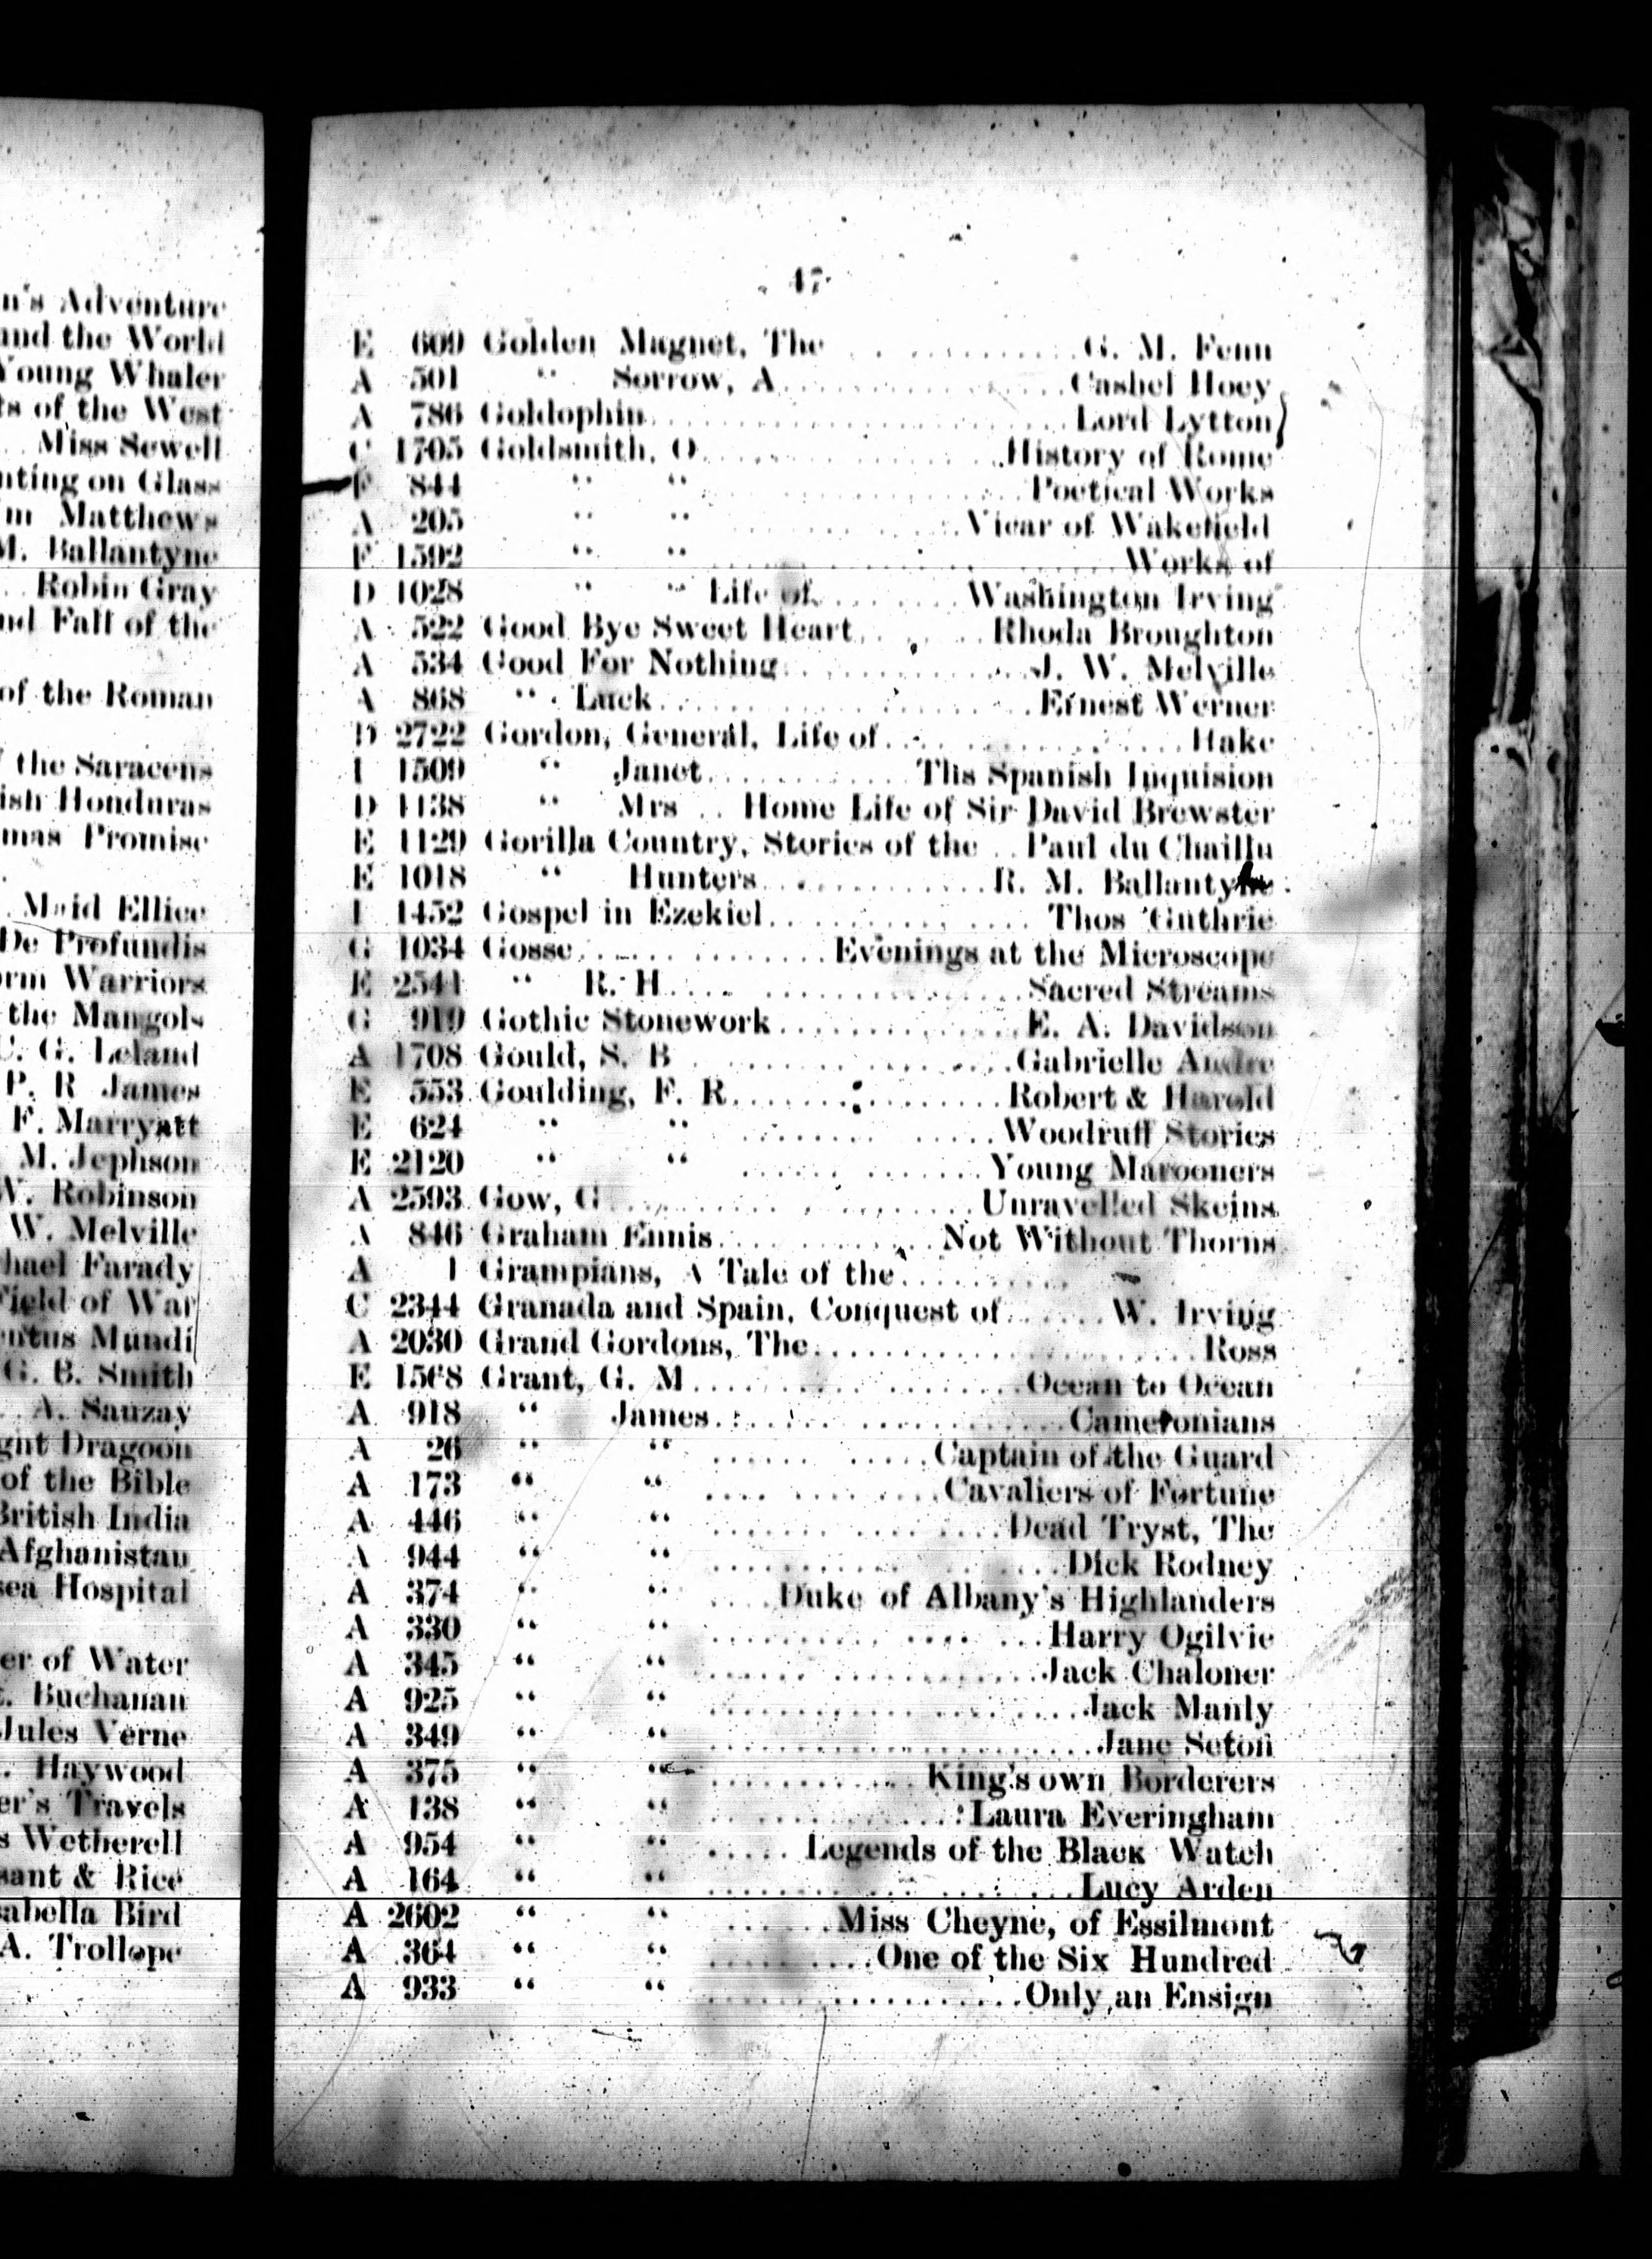 n's Adventure
and the World
Young Whaler
ts of the West
Miss Sewell
nting on Glass
m Matthews
M. Ballantyne
Robin Gray
nd Fall of the
of the Roman
the Saracens
ish Honduras
mas Promise
Maid Ellice
De Profundis
orm Warriors
the Mangols
C. G. Leland
P. R James
F. Marryatt
M. Jephson
W. Robinson
W. Melville
hael Farady
Field of War
entus Mundi
G. B. Smith
A. Sauzay
ght Dragoon
of the Bible
British India
Afghanistan
sea Hospital
er of Water
Buchanan
Jules Verne
Haywood
er's Travels
s Wetherell
sant & Rice
sabella Bird
A. Trollope
47
E 609 Golden Magnet, The ............ G. M. Fenn
A 501 “ Sorrow, A ............ Cashel Hoey
A 786 Goldophin ............ Lord Lytton
C 1705 Goldsmith, O ............ History of Rome
F 844 “ “ ............ Poetical Works
A 205 “ “ ............ Vicar of Wakefield
F 1592 “ “ ............ Works of
D 1028 “ “ Life of ........ Washington Irving
A 522 Good Bye Sweet Heart ...... Rhoda Broughton
A 534 Good For Nothing ............ J. W. Melville
A 868 “ Luck ............ Ernest Werner
D 2722 Gordon, General, Life of ............ Hake
I 1509 “ Janet ............ Ths Spanish Inquision
D 1138 “ Mrs .. Home Life of Sir David Brewster
E 1129 Gorilla Country, Stories of the .. Paul du Chaillu
E 1018 “ Hunters ............ R. M. Ballantyne
I 1452 Gospel in Ezekiel ............ Thos Guthrie
G 1034 Gosse ............ Evenings at the Microscope
E 2541 “ R. H ............ Sacred Streams
G 919 Gothic Stonework ............ E. A. Davidson
A 1708 Gould, S. B ............ Gabrielle Andre
E 553 Goulding, F. R ............ Robert & Harold
E 624 “ “ ............ Woodruff Stories
E 2120 “ “ ............ Young Marooners
A 2593 Gow, G ............ Unravelled Skeins
A 846 Graham Ennis ............ Not Without Thorns
A 1 Grampians, A Tale of the ............
C 2344 Granada and Spain, Conquest of ...... W. Irving
A 2030 Grand Gordons, The ............ Ross
E 1568 Grant, G. M ............ Ocean to Ocean
A 918 “ James ............ Cameronians
A 26 “ “ ............ Captain of the Guard
A 173 “ “ ............ Cavaliers of Fortune
A 446 “ “ ............ Dead Tryst, The
A 944 “ “ ............ Dick Rodney
A 374 “ “ .... Duke of Albany's Highlanders
A 330 “ “ ............ Harry Ogilvie
A 345 “ “ ............ Jack Chaloner
A 925 “ “ ............ Jack Manly
A 349 “ “ ............ Jane Seton
A 375 “ “ ............ King's own Borderers
A 138 “ “ ............ Laura Everingham
A 954 “ “ ..... Legends of the Black Watch
A 164 “ “ ............ Lucy Arden
A 2602 “ “ ...... Miss Cheyne, of Essilmont
A 364 “ “ .......... One of the Six Hundred
A 933 “ “ ............ Only an Ensign